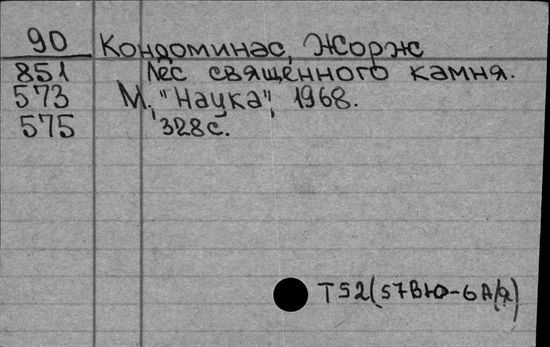 90 Кондоминас, Жорж
851 Лес священного камня.
573 М., "Наука", 1968.
575 328с.
Т52(57ВЮ-6А/я)